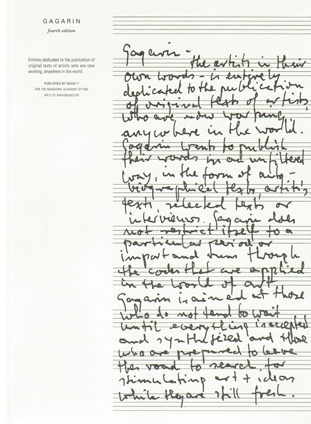 GAGARIN
fourth edition
Entirely dedicated to the publication of
original texts of artists who are now
working, anywhere in the world.
PUBLISHED BY
FOR THE MUNICIPAL ACADEMY OF FINE
ARTS OF
Gagarin -
the artists in their
own words - is entirely
dedicated to the publication
of original texts of artists,
who are now working,
anywhere in the world.
Gagarin wants to publish
their words in an unfiltered
way, in the form of auto-
biographical texts, artist's
texts, selected texts or
interviews. Gagarin does
not restrict itself to a
particular period or
import and runs through
the codes that are applied
in the world of art.
Gagarin is aimed at those
who do not tend to wait
until everything is accepted
and synthesized and those
who are prepared to leave
this road to search for
stimulating art + ideas
while they are still fresh.